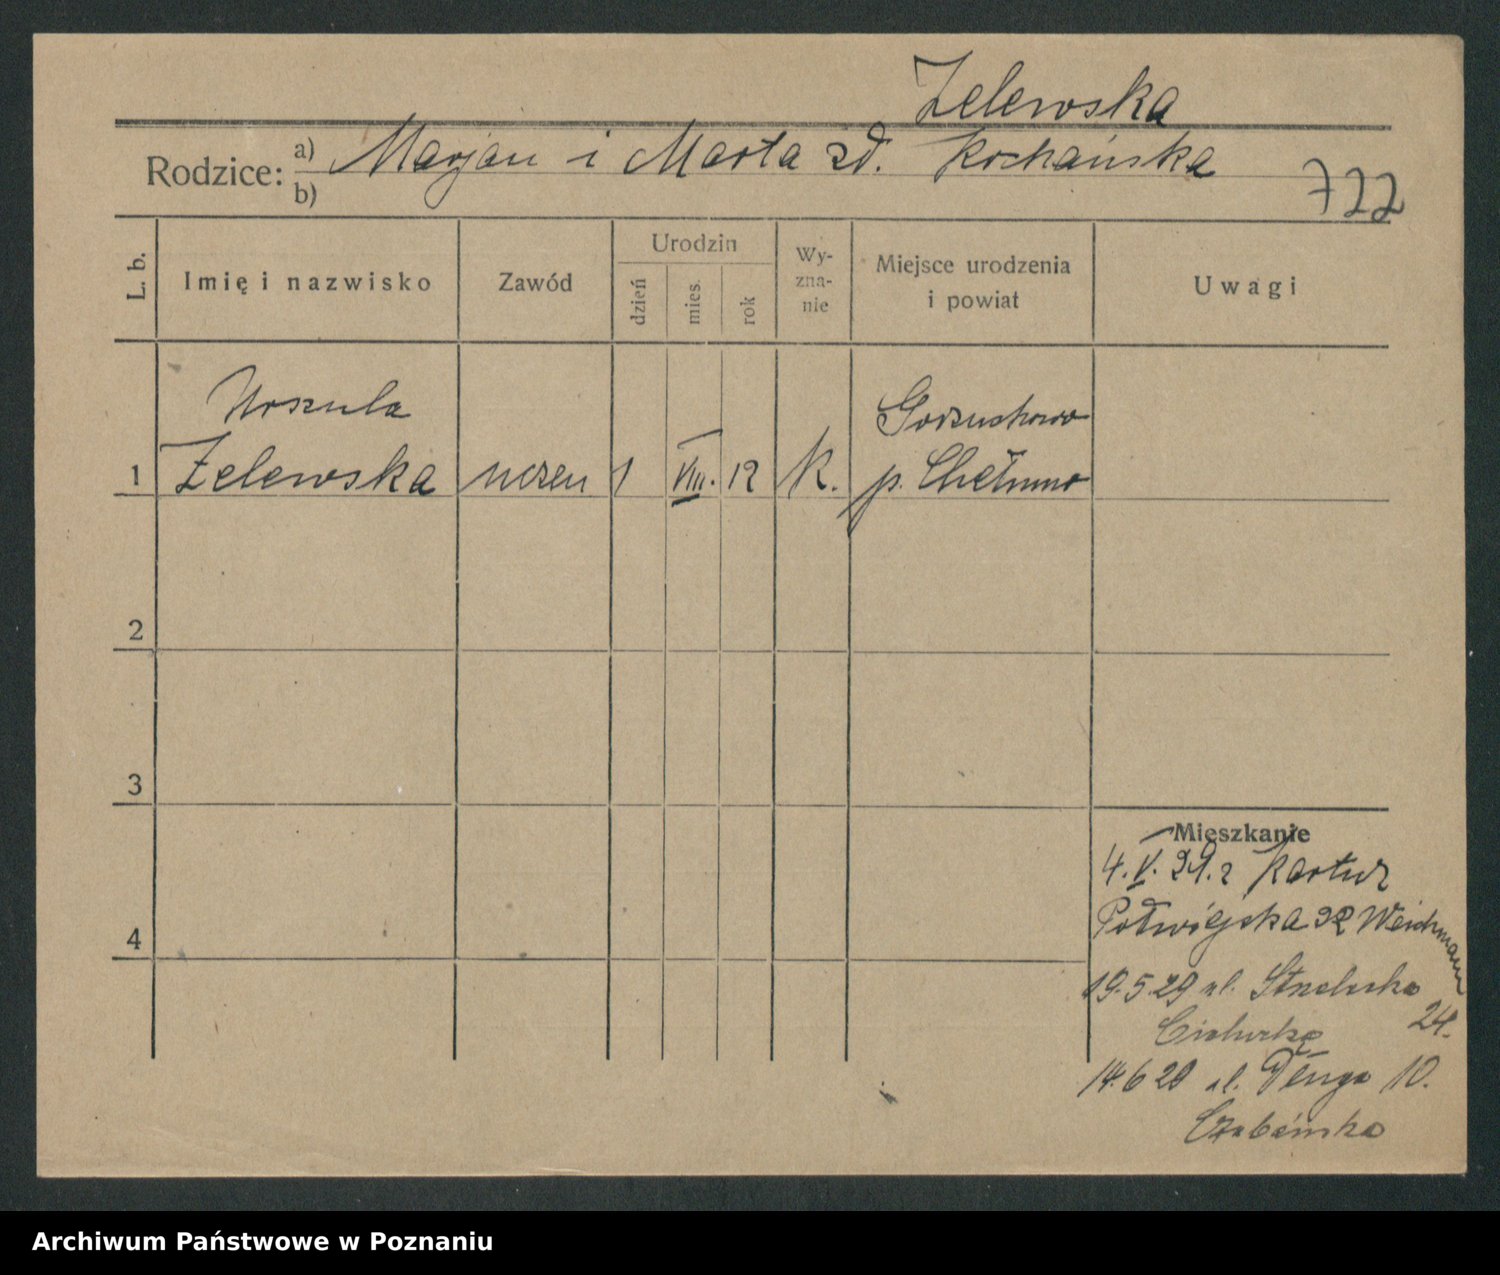 Żelewska
Rodzice: a) Marjan i Marta zd. Kochańska
b)
722
L. b.
Imię i nazwisko
Zawód
Urodzin
dzień
mies.
rok
Wy-
zna-
nie
Miejsce urodzenia
i powiat
Uwagi
Urszula
Gorzuchowo
1 Żelewska uczen 1 VIII. 12 K. p. Chełmno
2
3
Mieszkanie
4. V. 29. z Kartuz
Półwiejska 32 Weichmann
4
19.5.29 ul. Strzelecka
24.
14.6 29 ul. Długa 10.
Archiwum Państwowe w Poznaniu